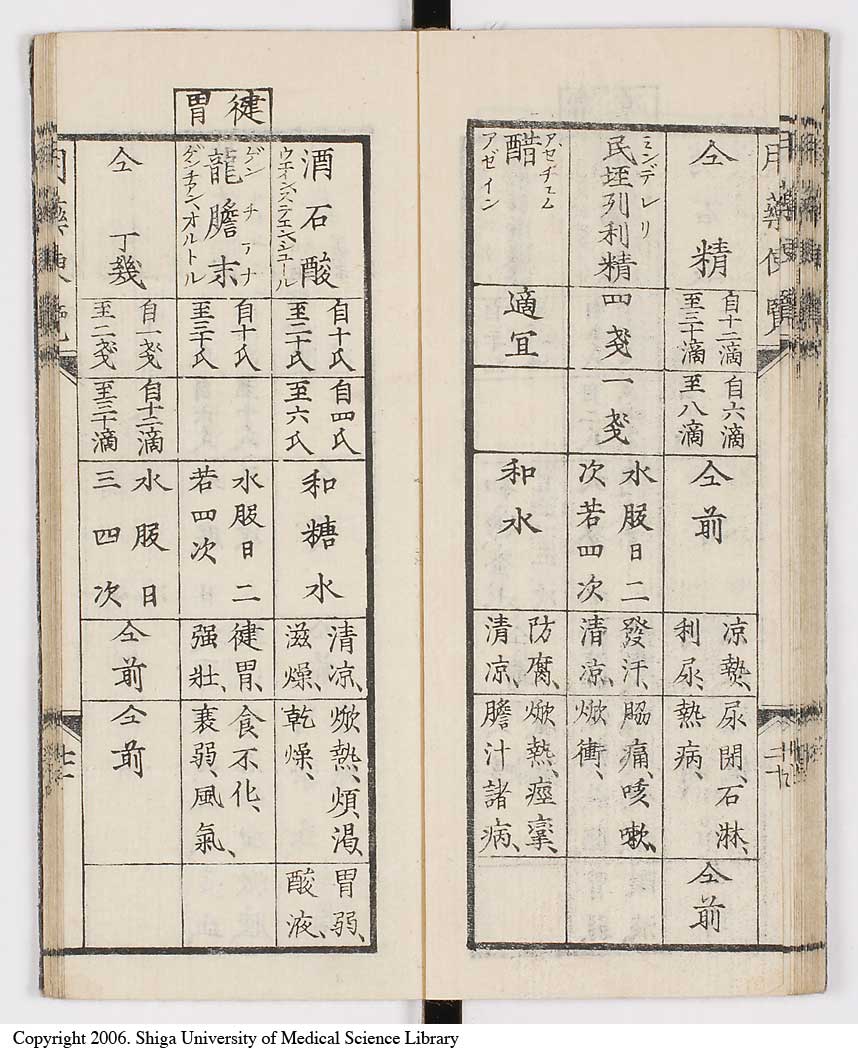 用藥便覧
仝精
自十二滴
至三十滴
自六滴
至八滴
仝前
凉熱、
利尿、
尿閉、石淋、
熱病、
仝前
ミンデレリ
民垤列利精
四戔
一戔
水服日二
次若四次
發汗、
清凉、
脇痛、咳嗽、
焮衝、
アゼチュム
醋
アゼイン
適宜
和水
防腐、
清凉、
焮熱、痙攣、
膽汁諸病、
健胃
酒石酸
ウエインステエンシュール
自十氏
至二十氏
自四氏
至六氏
和糖水
清凉、
滋燥、
焮熱、煩渇、
乾燥、
胃弱、
酸液、
ゲンチアナ
龍膽末
ゲンチアンオルトル
自十氏
至三十氏
水服日二
若四次
健胃、
强壯、
食不化、
衰弱、風氣、
仝丁幾
自一戔
至二戔
自十二滴
至三十滴
水服日
三四次
仝前
仝前
Copyright 2006. Shiga University of Medical Science Library